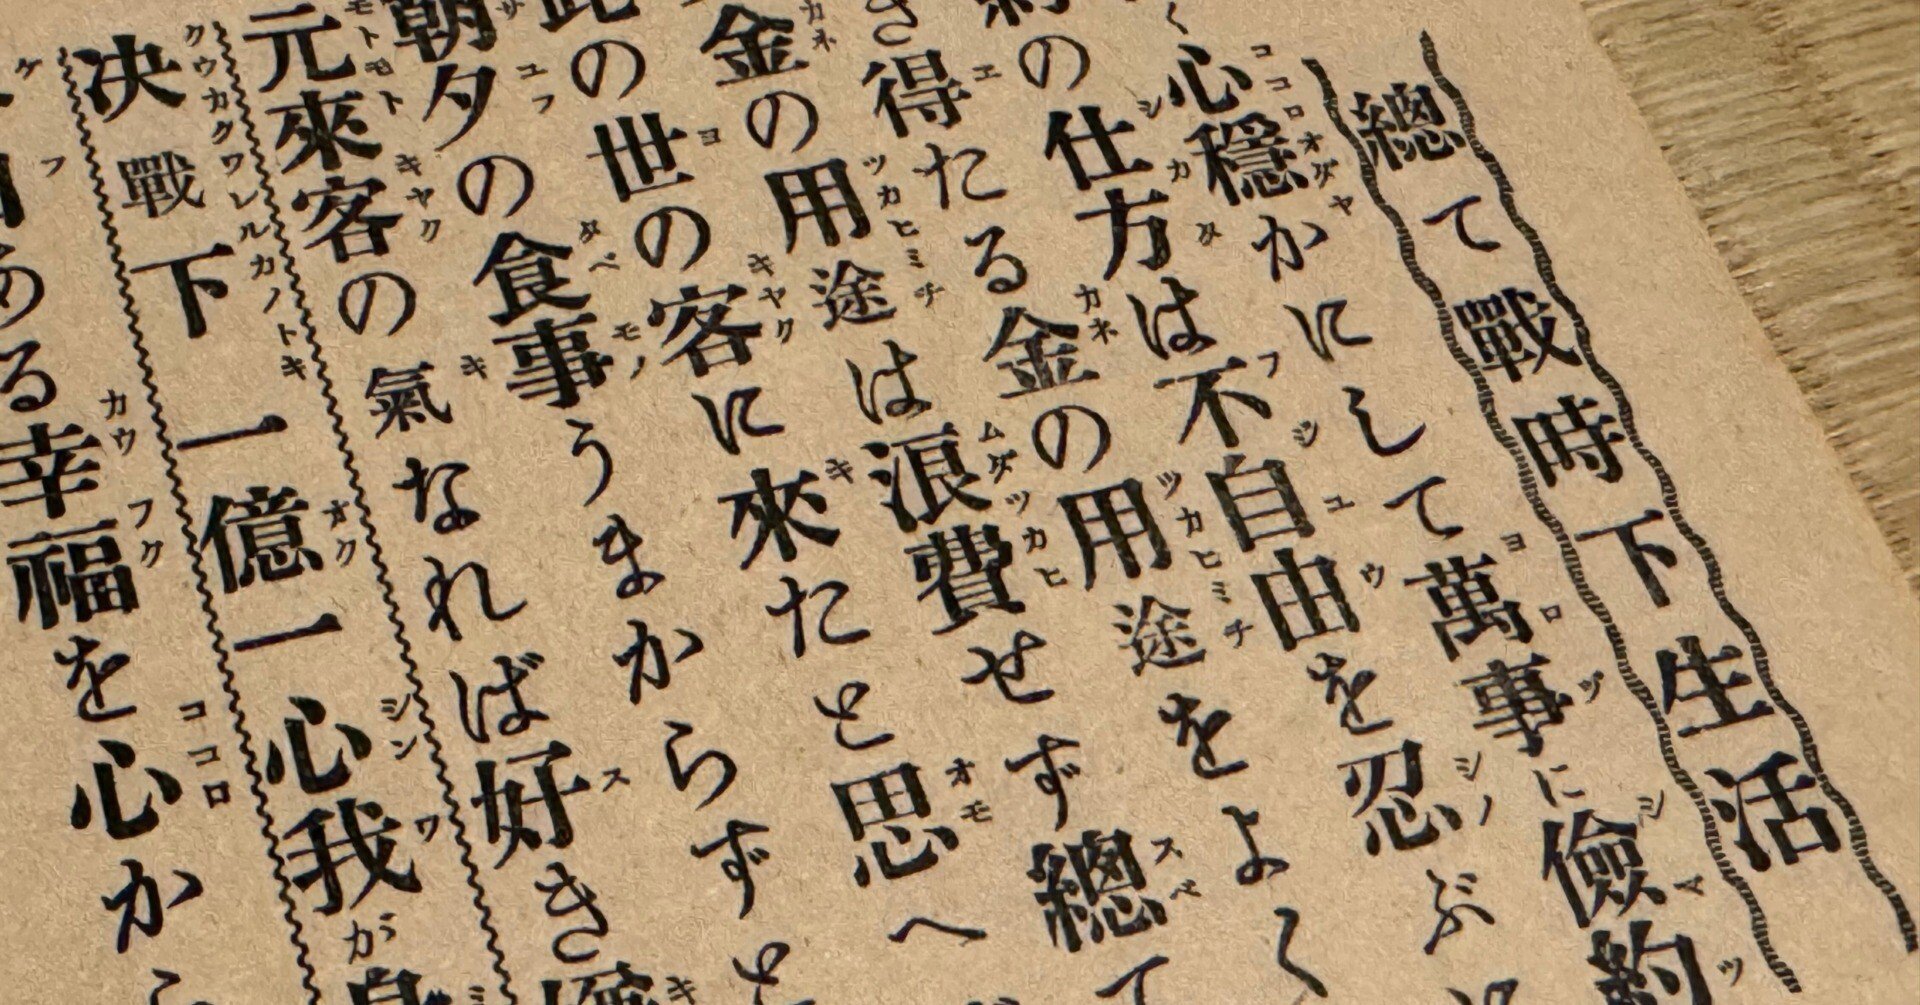 總て戰時下生活
く心穩かにして萬事に儉約
約の仕方は不自由を忍ぶ
き得たる金の用途をよく
金の用途は浪費せず總て
此の世の客に來たと思へ
朝夕の食事うまからずと
元來客の氣なれば好き嫌
決戰下一億一心我が身
ある幸福を心から